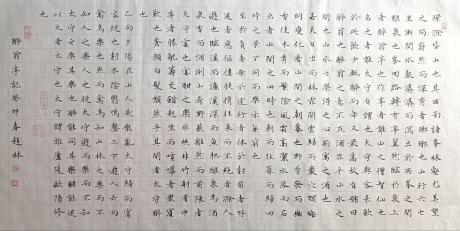 環滁皆山也其西南諸峯林壑尤美望
之蔚然而深秀者瑯琊也山行六七
里漸聞水聲潺潺而瀉出於兩峯之間者
釀泉也峯回路轉有亭翼然臨於泉上
者醉翁亭也作亭者誰山之僧智仙也
名之者誰太守自謂也太守與客來飲
於此飲少輒醉而年又最高故自號曰
醉翁也醉翁之意不在酒在乎山水之
間也山水之樂得之心而寓之酒也
若夫日出而林霏開雲歸而巖穴暝晦
明變化者山間之朝暮也野芳發而幽
香佳木秀而繁陰風霜高潔水落而石
出者山間之四時也朝而往暮而歸四
時之景不同而樂亦無窮也
至於負者歌於塗行者休於樹前者呼
後者應傴僂提攜往來而不絕者滁人
遊也臨溪而漁溪深而魚肥釀泉為酒
泉香而酒洌山肴野蔌雜然而前陳者
太守宴也宴酣之樂非絲非竹射者中
弈者勝觥籌交錯起坐而諠譁者眾賓
歡也蒼顏白髮頹然乎其間者太守醉
也
已而夕陽在山人影散亂太守歸而賓
客從也樹林陰翳鳴聲上下遊人去而
禽鳥樂也然而禽鳥知山林之樂而不知
人之樂人知從太守遊而樂而不知
太守之樂其樂也醉能同其樂醒能述
以文者太守也太守謂誰廬陵歐陽修
也
醉翁亭記癸卯春趙林